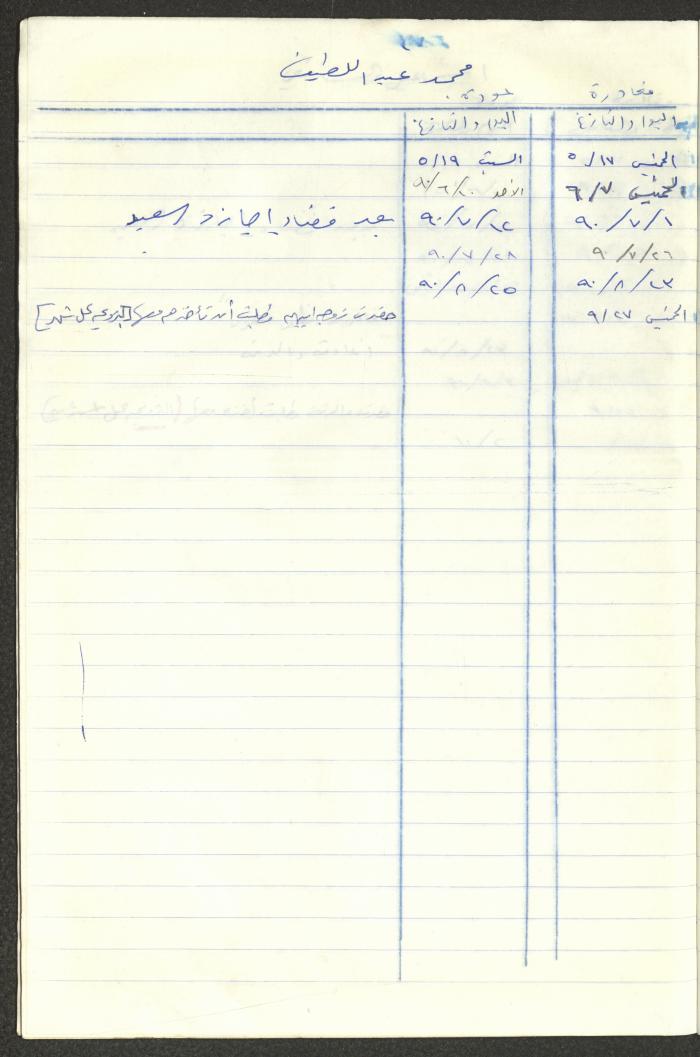 محمد عبد اللطيف
مغادرة عودة
اليوم والتاريخ اليوم والتاريخ
الخميس ٥/١٧ السبت ٥/١٩
الخميس ٦/٧ الأحد ٩٠/٦/١٠
٩٠/٧/١ ٩٠/٧/١٢ بعد قضاء إجازة العيد
٩٠/٧/٢٦ ٩٠/٧/٢٨
٩٠/٨/٢٣ ٩٠/٨/٢٥
الخميس ٩/٢٧ حضرت زوجة أبيه وطلبت أن تأخذه معها كل شهر]